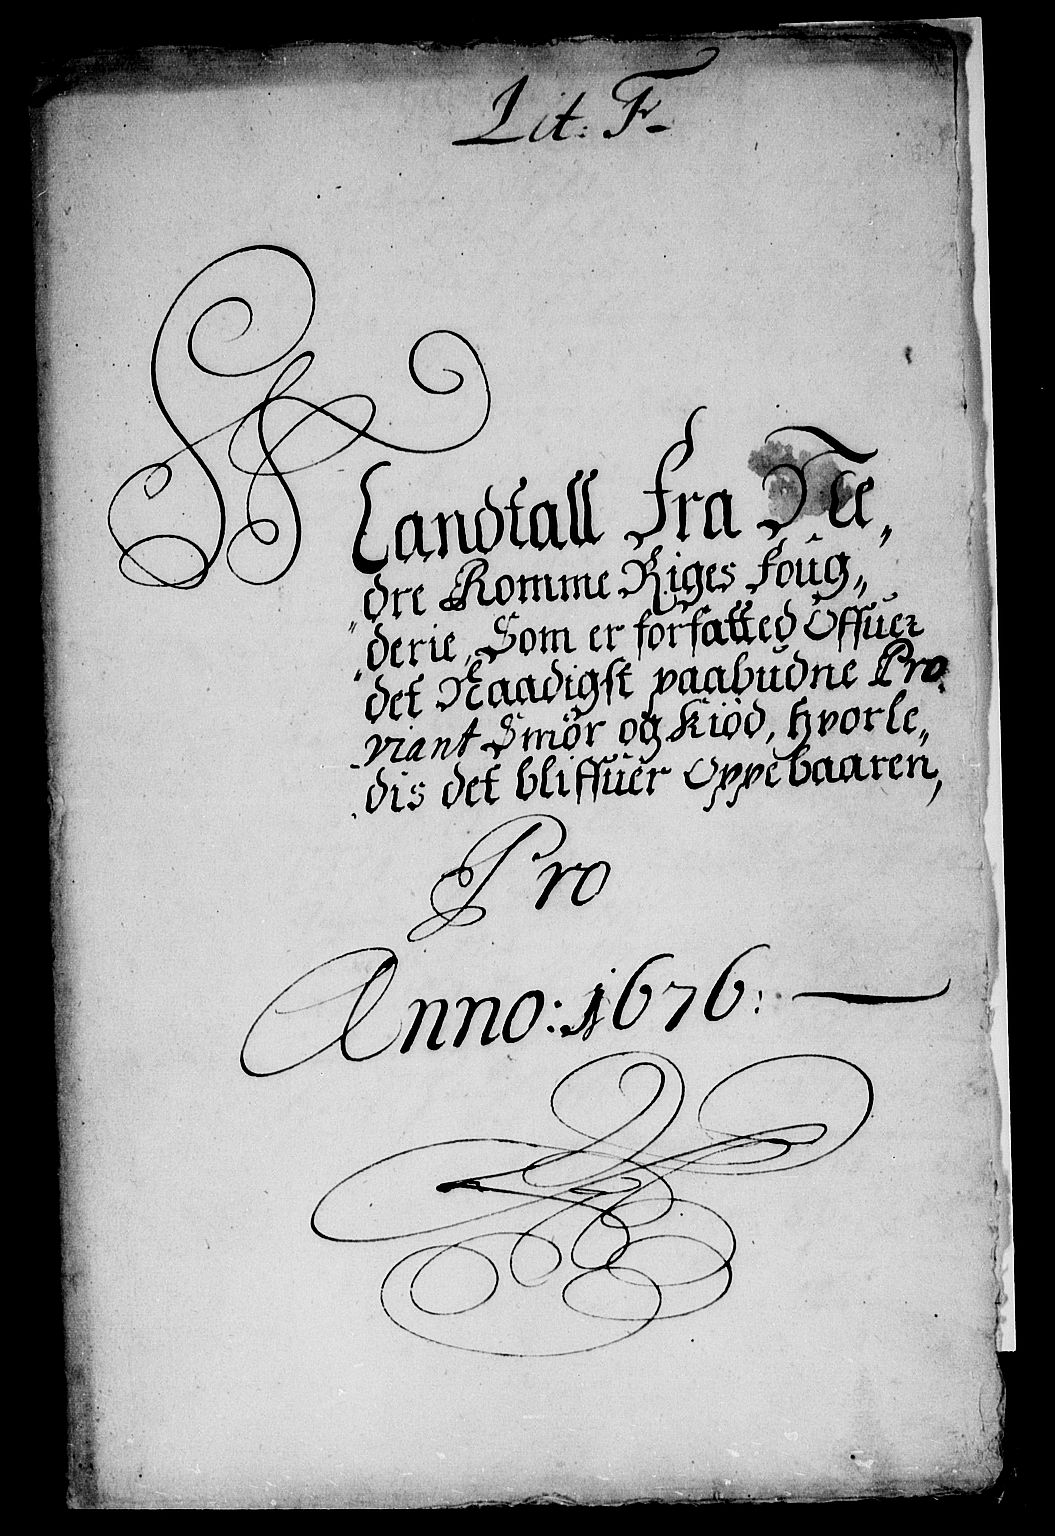 Lit: F-
Landtall fra Ne„
„dre Romme Riges foug„
„derie, Som er forfatted Offuer
det Naadigst paabudne Pro„
„viant Smör og Kiöd, hvorle„
„dis det bliffuer Oppebaaren,
Pro
Anno: 1676: